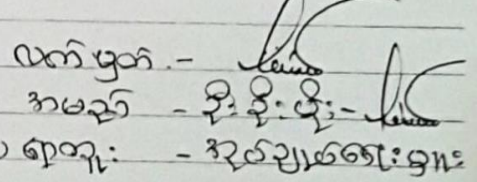 လက်မှတ် .-
အမည် - ဦးဦးဖိုး -
ရာထူး - အုပ်ချုပ်ရေးမှူး